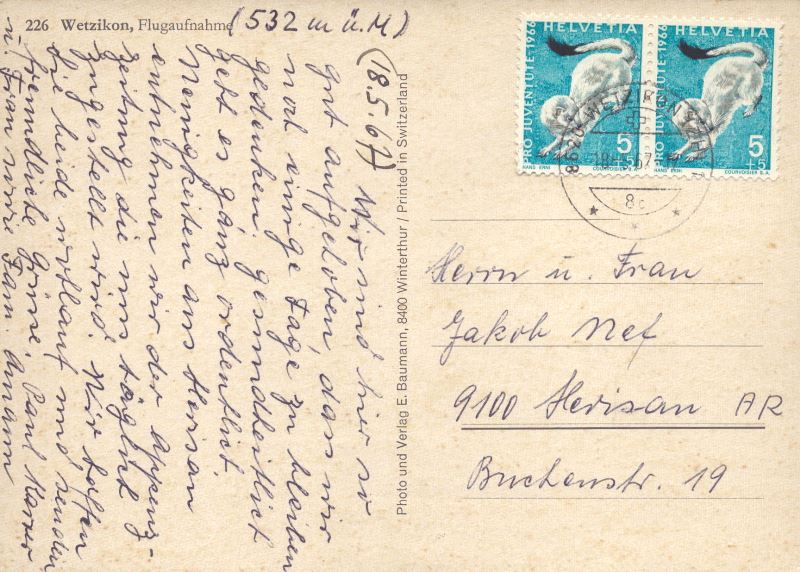 226 Wetzikon, Flugaufnahme (532 m ü.M)
(18.5.67) Wir sind hier so
gut aufgehoben, dass wir
noch einige Tage zu bleiben
gedenken. gesundheitlich
geht es ganz ordentlich.
Neuigkeiten aus Herisau
entnehmen wir der Appenz-
zeitung die uns täglich
zugestellt wird. Wir hoffen
Sie beide wohlauf und senden
freundliche Grüsse, Paul
u. Frau sowie Fam. Amann
Photo und Verlag E. Baumann, 8400 Winterthur / Printed in Switzerland
PRO JUVENTUTE · 1966
HELVETIA
5
+5
HANS ERNI
COURVOISIER S.A.
PRO JUVENTUTE · 1966
HELVETIA
5
+5
HANS ERNI
COURVOISIER S.A.
8620 WETZIKON ZH
Herrn u. Frau
Jakob Nef
9100 Herisau AR
Buchenstr. 19